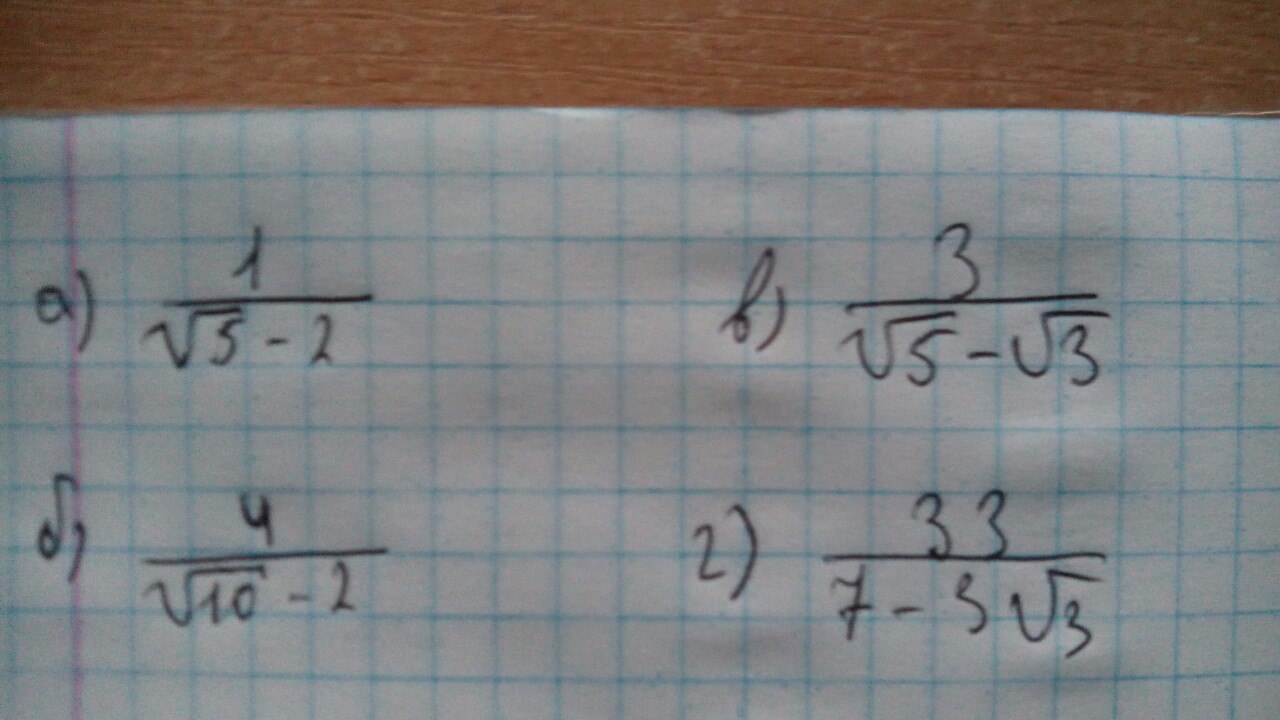 а) 1/(√5 - 2)
в) 3/(√5 - √3)
б) 4/(√10 - 2)
г) 33/(7 - 3√3)